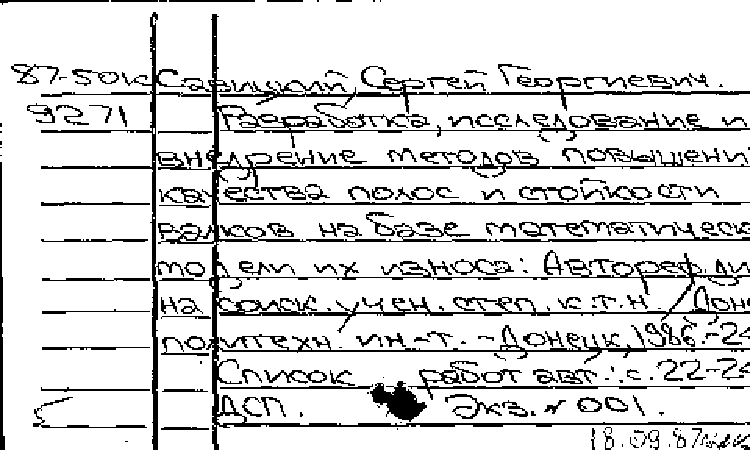 87-501к Савицкий, Сергей Георгиевич.
9271 Разработка, исследование и
внедрение методов повышени
качества полос и стойкости
валков на базе математическ
модели их износа: Автореф. ди
на соиск. учен. степ. к.т.н / Дон
политехн. ин-т. - Донецк, 1986. - 24
Список работ авт.: с. 22-24
ДСП. Экз. № 001.
18.09.87